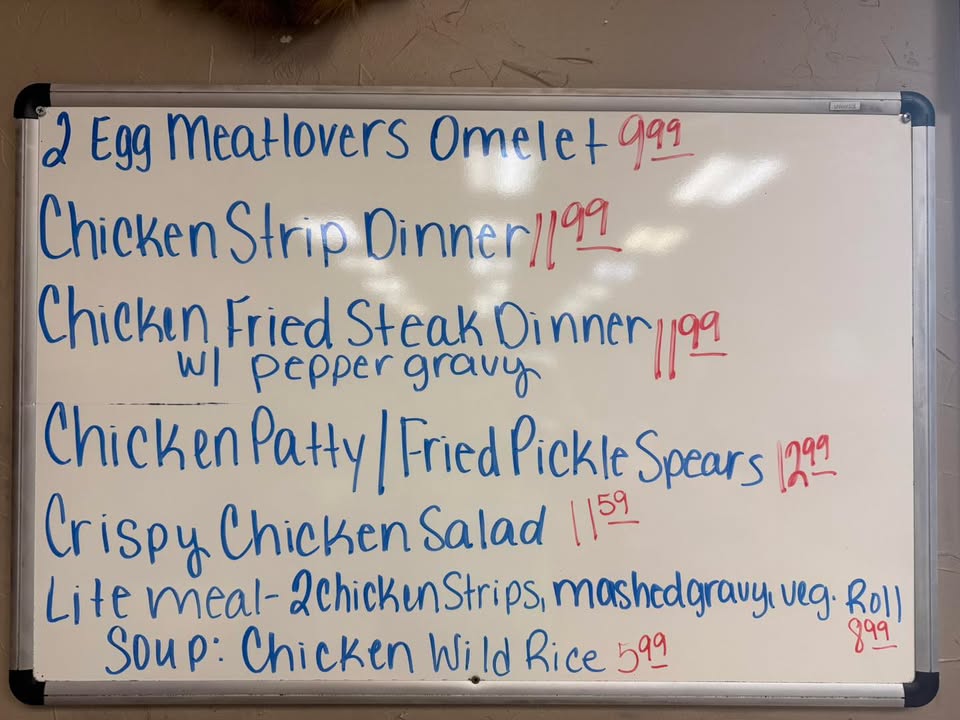 2 Egg Meatlovers Omelet 9.99
Chicken Strip Dinner 11.99
Chicken Fried Steak Dinner 11.99
w/ pepper gravy
Chicken Patty/Fried Pickle Spears 12.99
Crispy Chicken Salad 11.59
Lite meal- 2 chicken Strips, mashed gravy, veg. Roll
8.99
Soup: Chicken Wild Rice 5.99